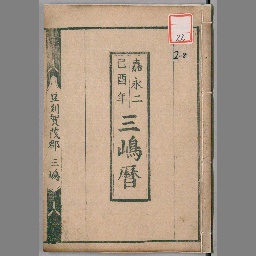 嘉永二
己酉年
三嶋暦
豆州賀茂郡 三嶋